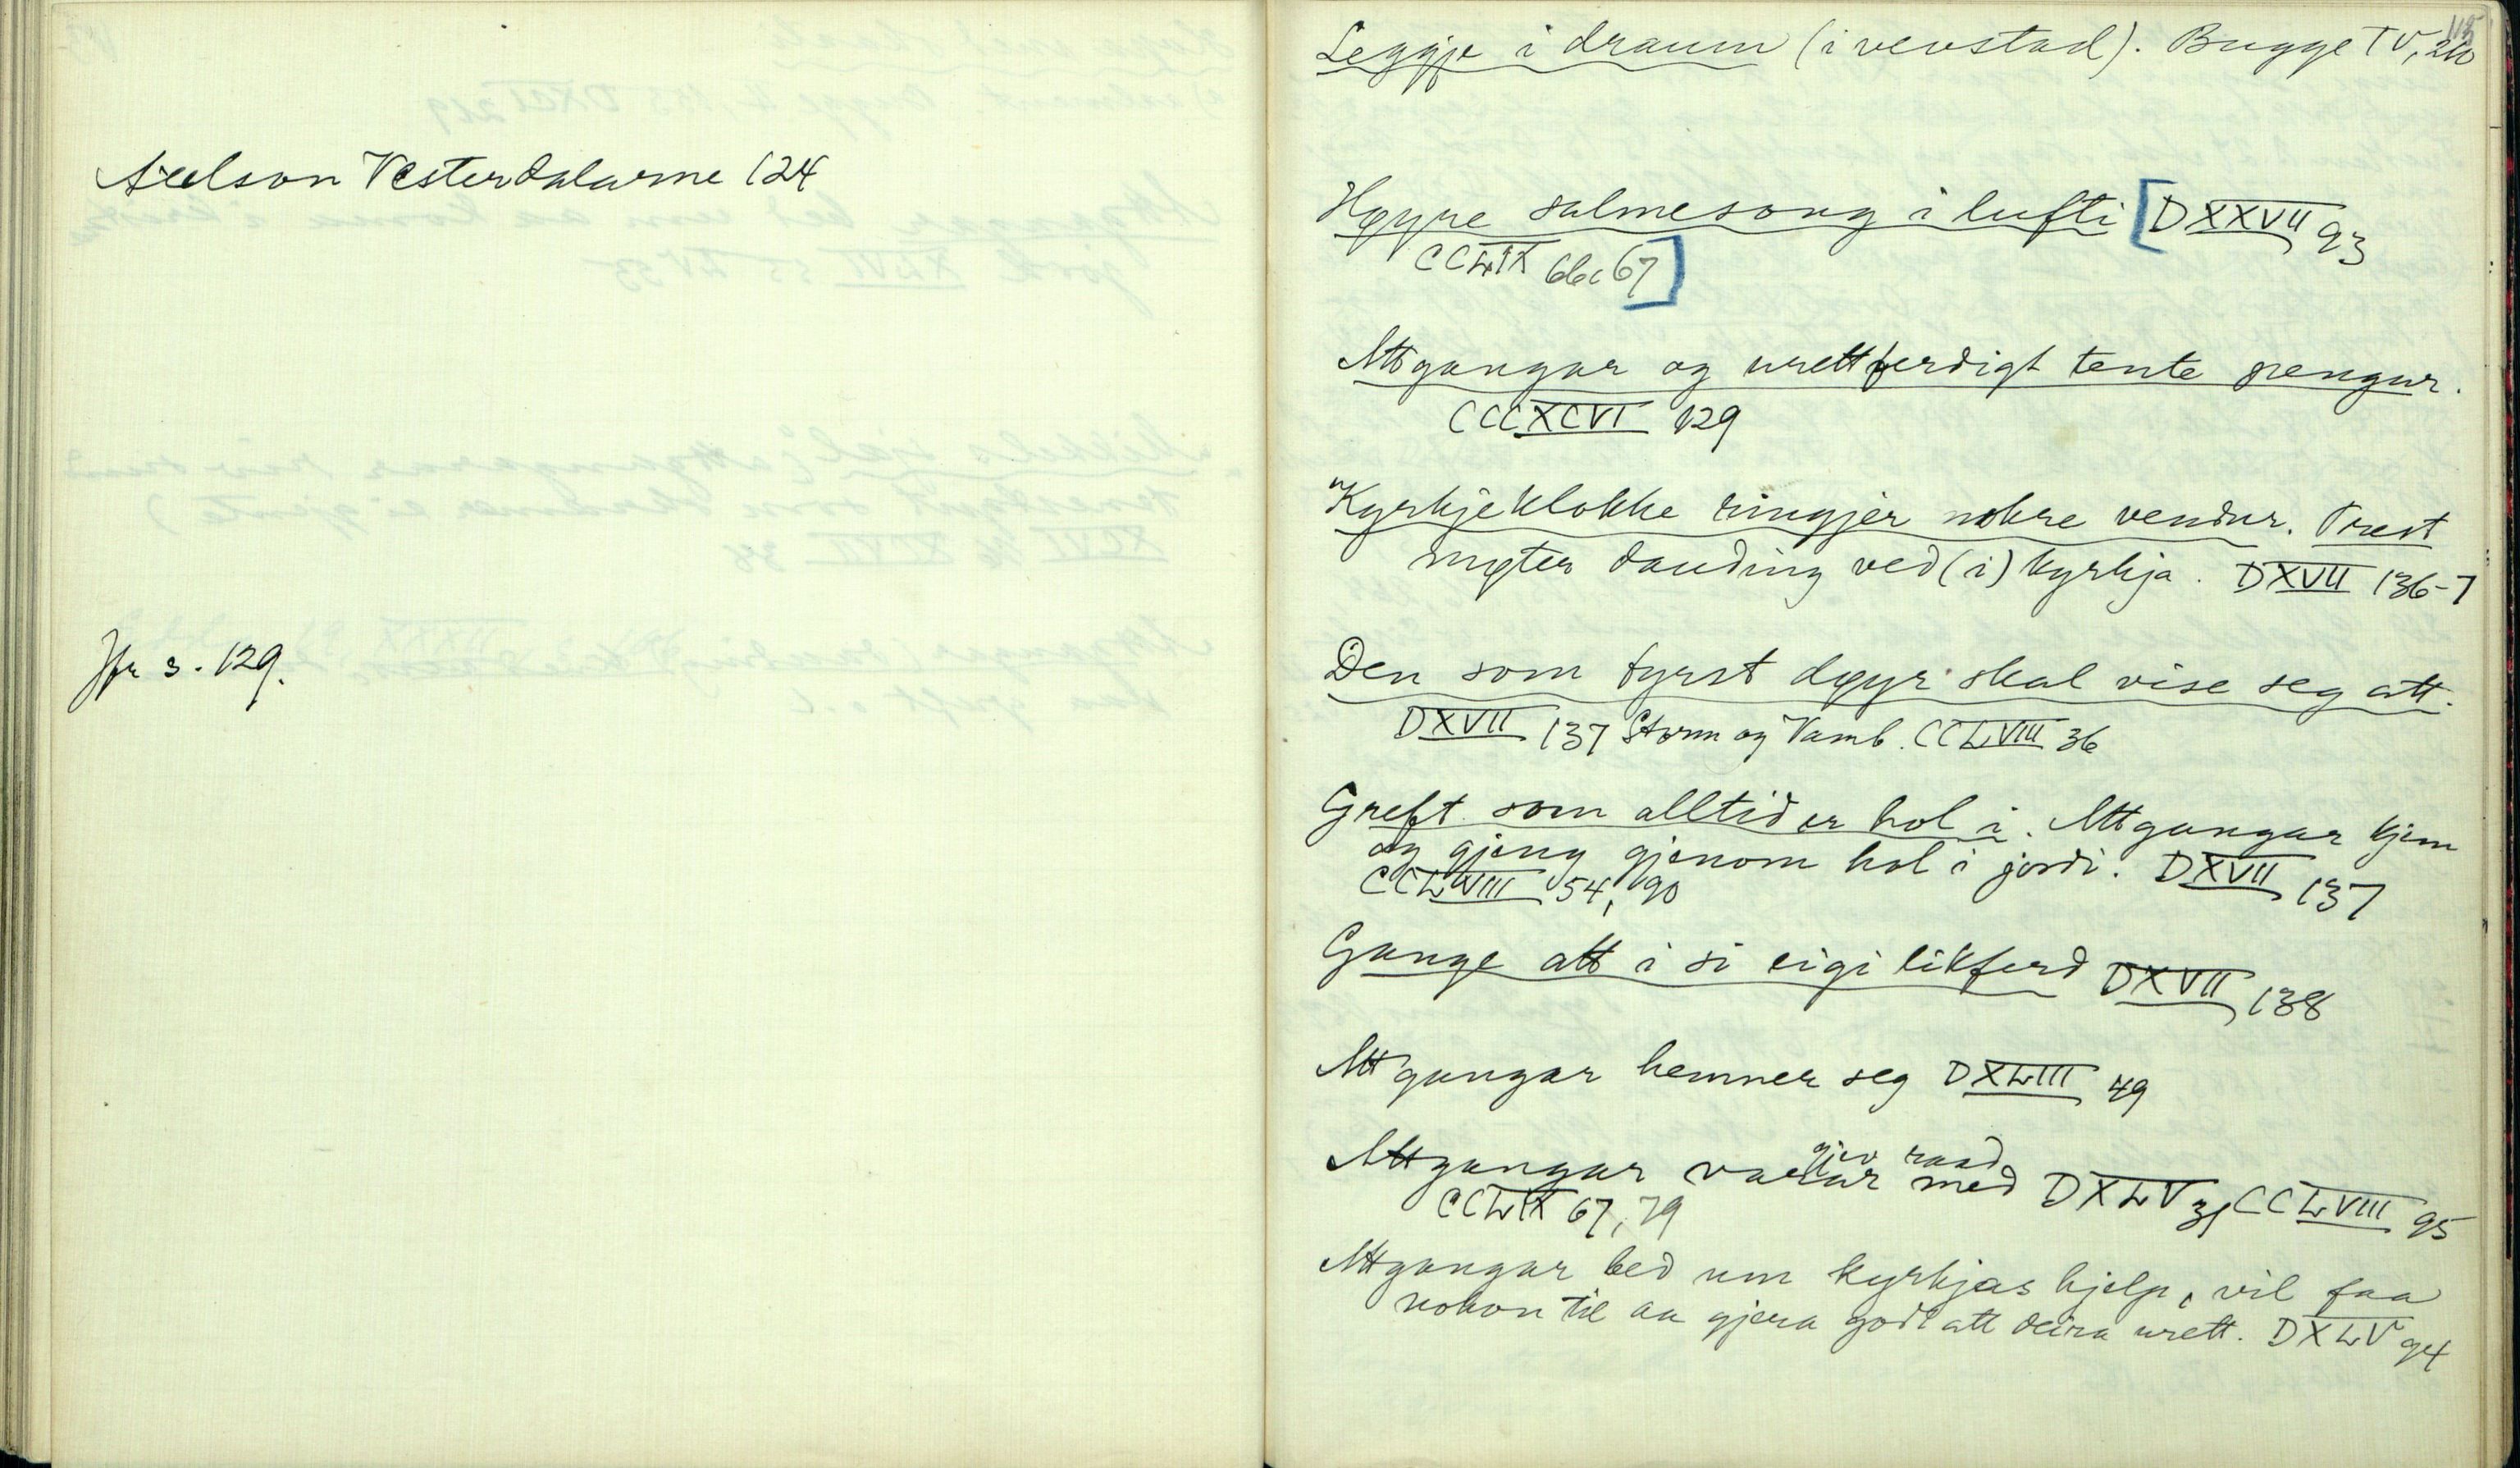 Axelson Vesterdalarne 124
Jfr s. 129.
115
Leggje i draum (i vevstad). Bugge IV, 210
Høyre salmesong i lufti [DXXVII 93
CCLIX 66, 67]
Attgangar og urettferdigt tente pengar.
CCCXCVI 129
"Kyrkjeklokke ringjer nokre vendur. Prest
møter dauding ved (i) kyrkja. DXVII 136-7
Den som fyrst døyr skal vise seg att.
DXVII 137 Storm og Vamb. CCLVIII 36
Greft som alltid er hol i. Attgangar kjem
og gjeng gjenom hol i jordi. DXVII 137
CCLVIII 54, 90
Gange att i si eigi likferd DXVII 138
Attgangar hemner seg DXLIII 49
gjev raad
Attgangar varar med DXLV 31 CCLVIII 95
CCLIX 67, 79
Attgangar bed um kyrkjas hjelp, vil faa
nokon til aa gjera godt att deira urett. DXLV 94